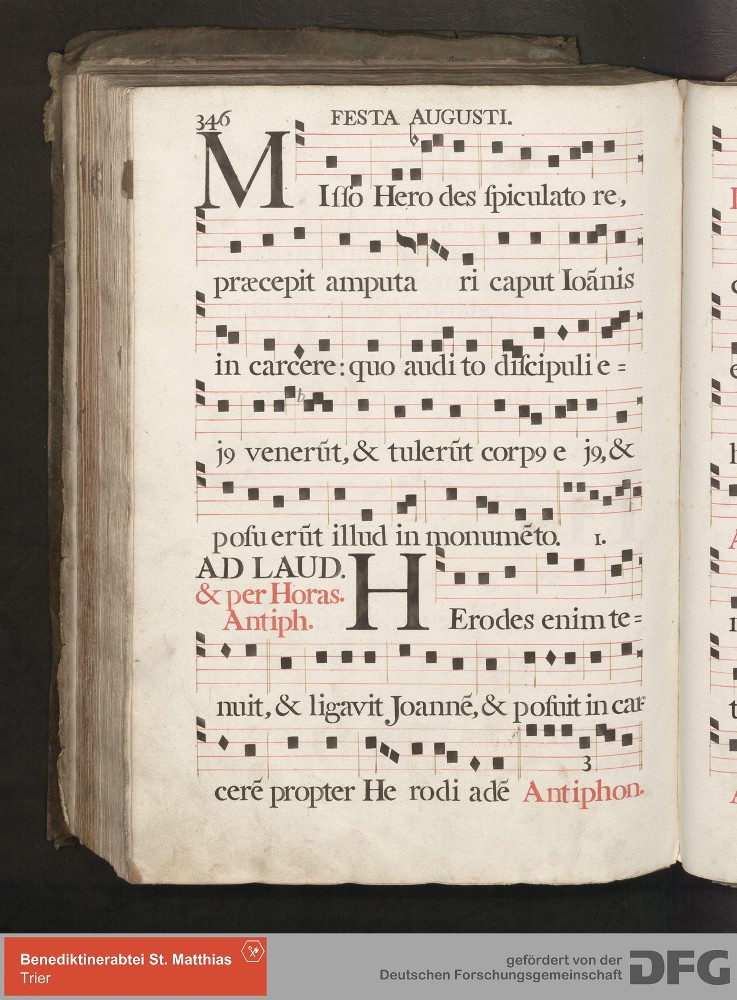 346 FESTA AUGUSTI.
MIſſo Hero des ſpiculato re,
præcepit amputa ri caput Ioãnis
in carcere: quo audi to diſcipuli e=
j9 venerũt, & tulerũt corp9 e j9, &
poſu erũt illud in monumẽto. 1.
AD LAUD.
& per Horas.
Antiph.
HErodes enim te=
nuit, & ligavit Joannẽ, & poſuit in car
3
cerẽ propter He rodi adẽ Antiphon.
Benediktinerabtei St. Matthias
Trier
gefördert von der
Deutschen Forschungsgemeinschaft
DFG